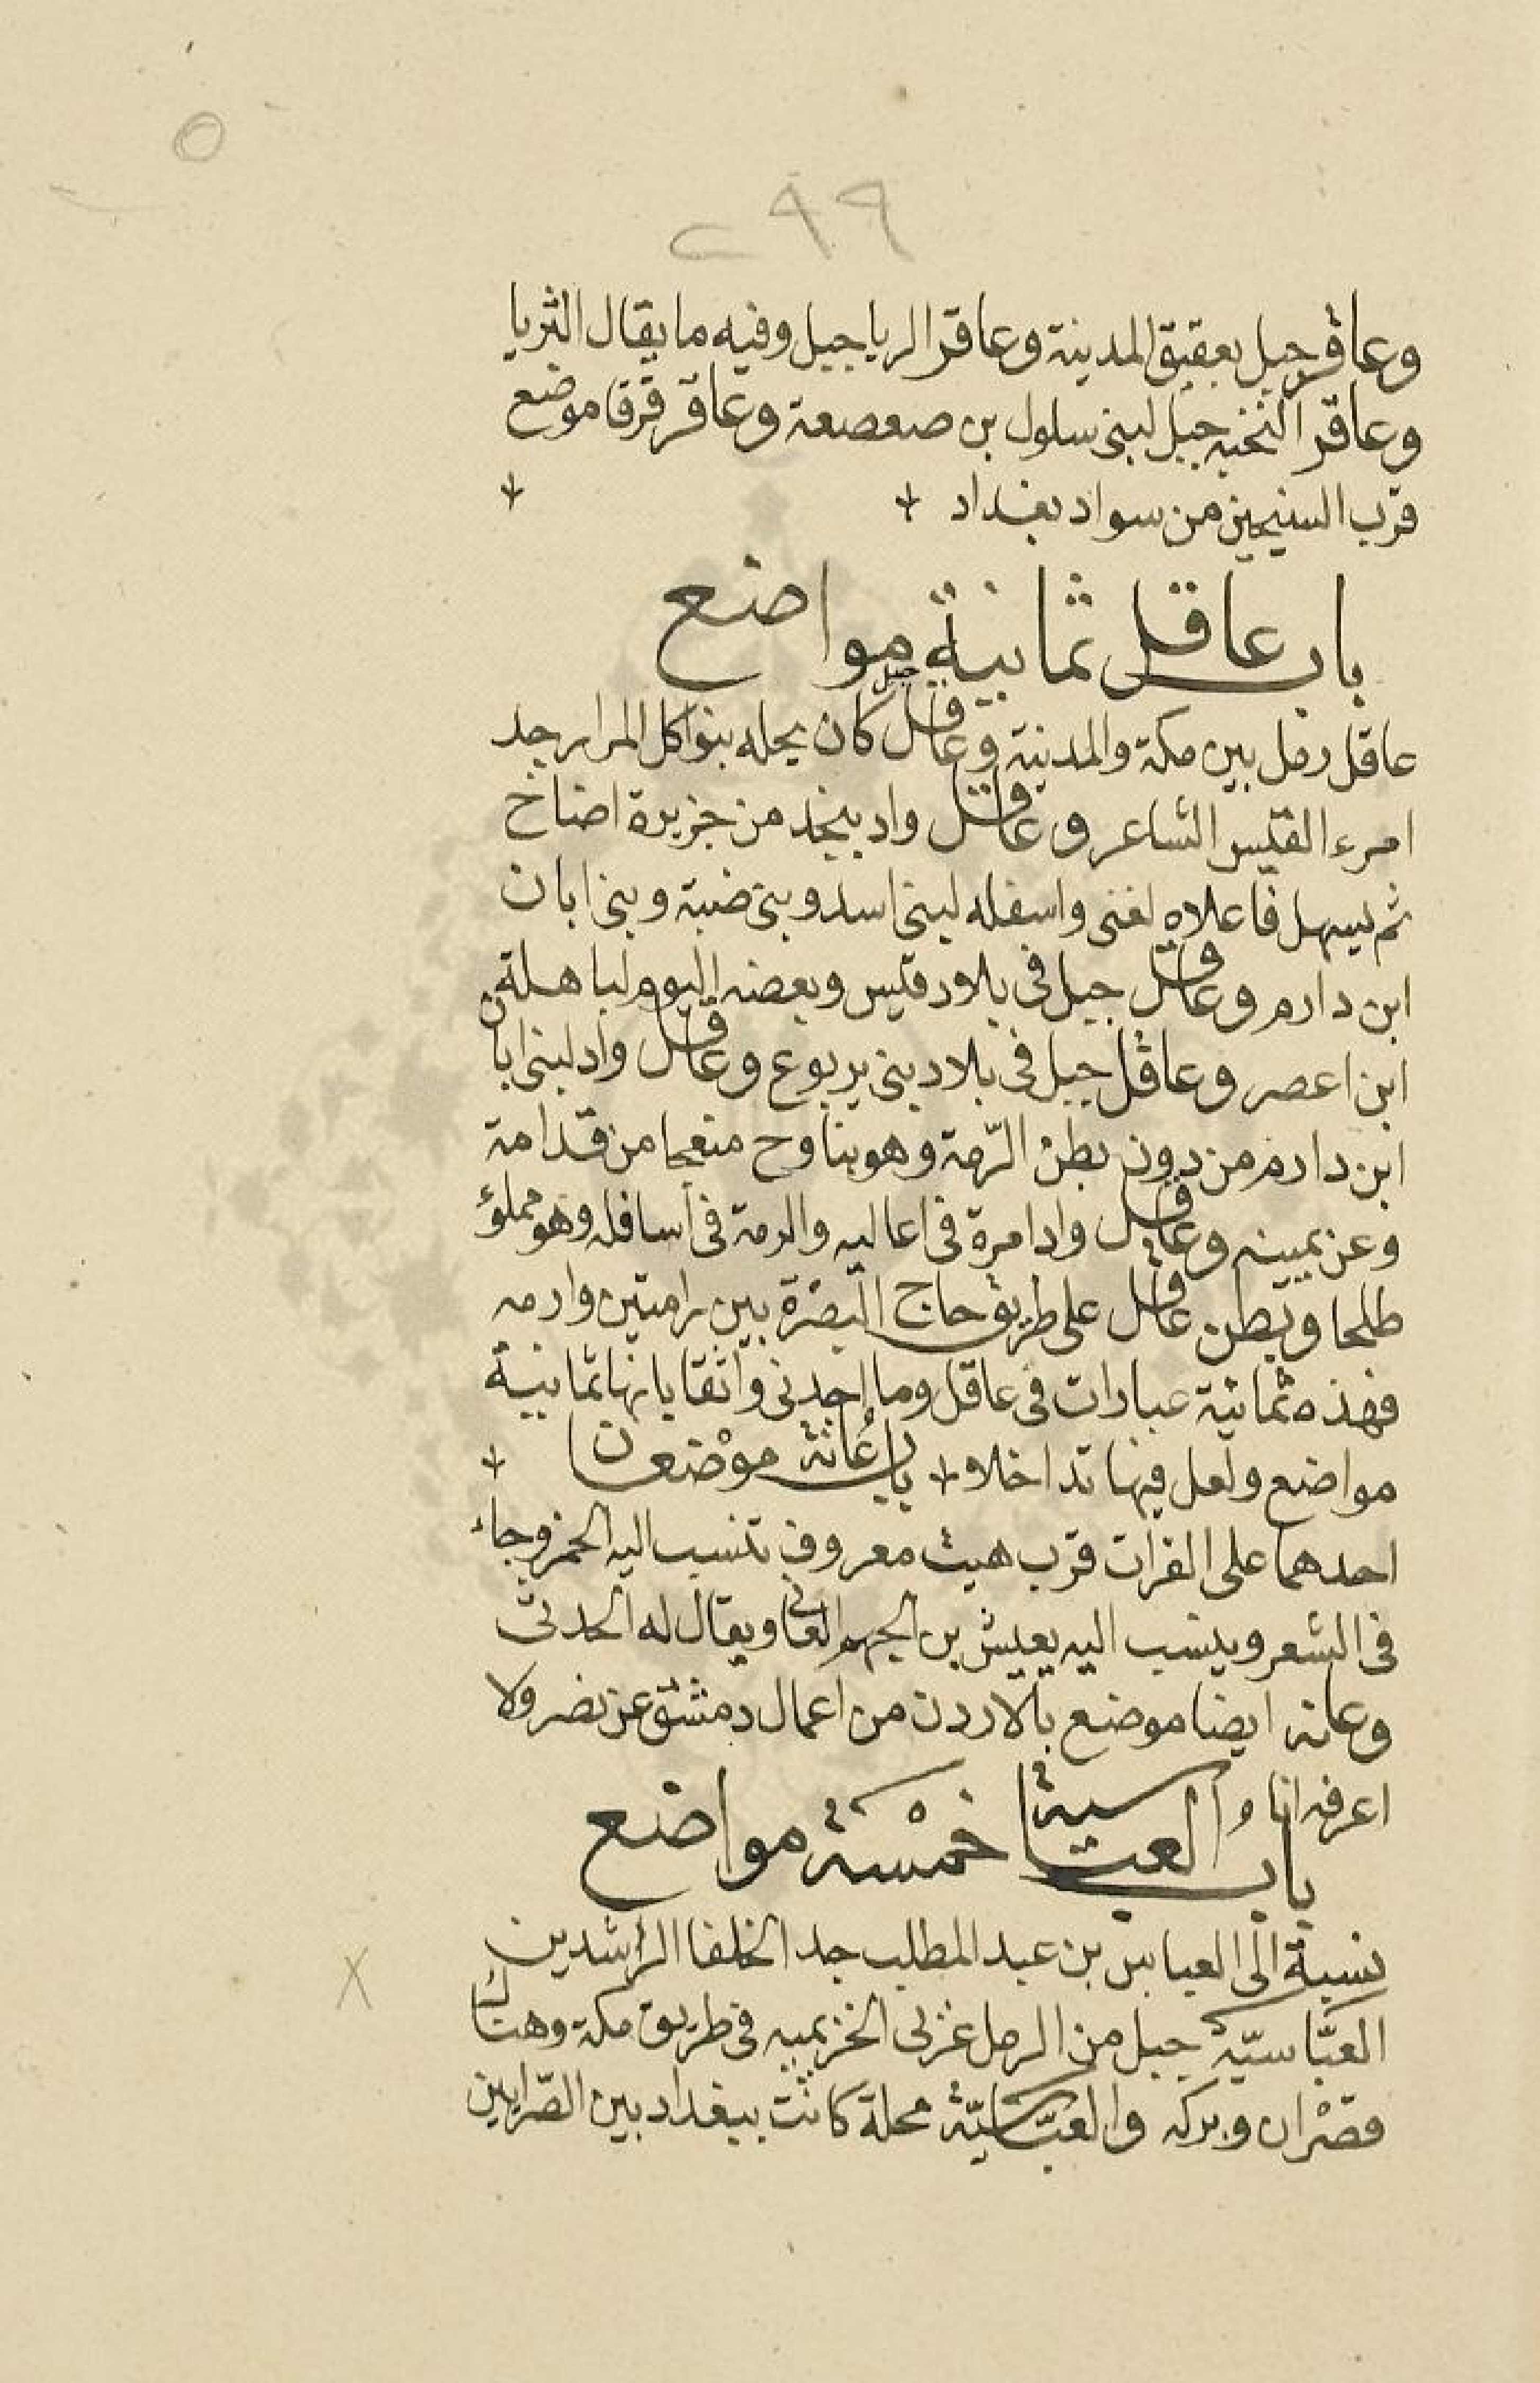 ٢٩٩
وعاقر جبل بعقيق المدينة وعاقر الريا جبل وفيه ما يقال الثريا
وعاقر النخبه جبل لبنى سلول بن صعصعة وعاقر قرقا موضع
قرب السنيحين من سواد بغداد
باب عاقل ثمانية مواضع
عاقل رمل بين مكة والمدينة وعاقل جبل كان يحله بنو اكل المرار جد
امرء القيس الشاعر وعاقل واد بنجد من جزيرة اضاخ
ثم يسهل فاعلاه لغنى واسفله لبنى اسد وبنى ضبة وبنى ابان
ابن دارم وعاقل جبل فى بلاد قيس وبعضه اليوم لباهلة
ابن اعصر وعاقل جبل فى بلاد بنى يربوع وعاقل واد لبنى ابان
ابن دارم من دون بطن الرّمة وهو يناوح منعجا من قدامة
وعن يمينه وعاقل واد امرة فى اعاليه والرمة فى اسافله وهو مملؤ
طلحا وبطن عاقل على طريق حاج البصرة بين رامتين وارمه
فهذه ثمانية عبارات فى عاقل وما اجدنى واثقا بانها ثمانية
مواضع ولعل فيها تداخلا باب عُانة موضعان
احدهما على الفرات قرب هيت معروف تنسب اليه الخمر وجاء
فى الشعر وينسب اليه يعيش بن الجهم العانى ويقال له الحدثى
وعانه ايضا موضع بالاردن من اعمال دمشق عن نصر ولا
اعرفه انا
باب العباسية خمسة مواضع
نسبة الى العباس بن عبد المطلب جد الخلفا الراشدين
العبّاسيّة جبل من الرمل غربى الخزيميه فى طريق مكة وهناك
قصران وبركه والعبّاسيّة محلة كانت ببغداد بين الصّراتين